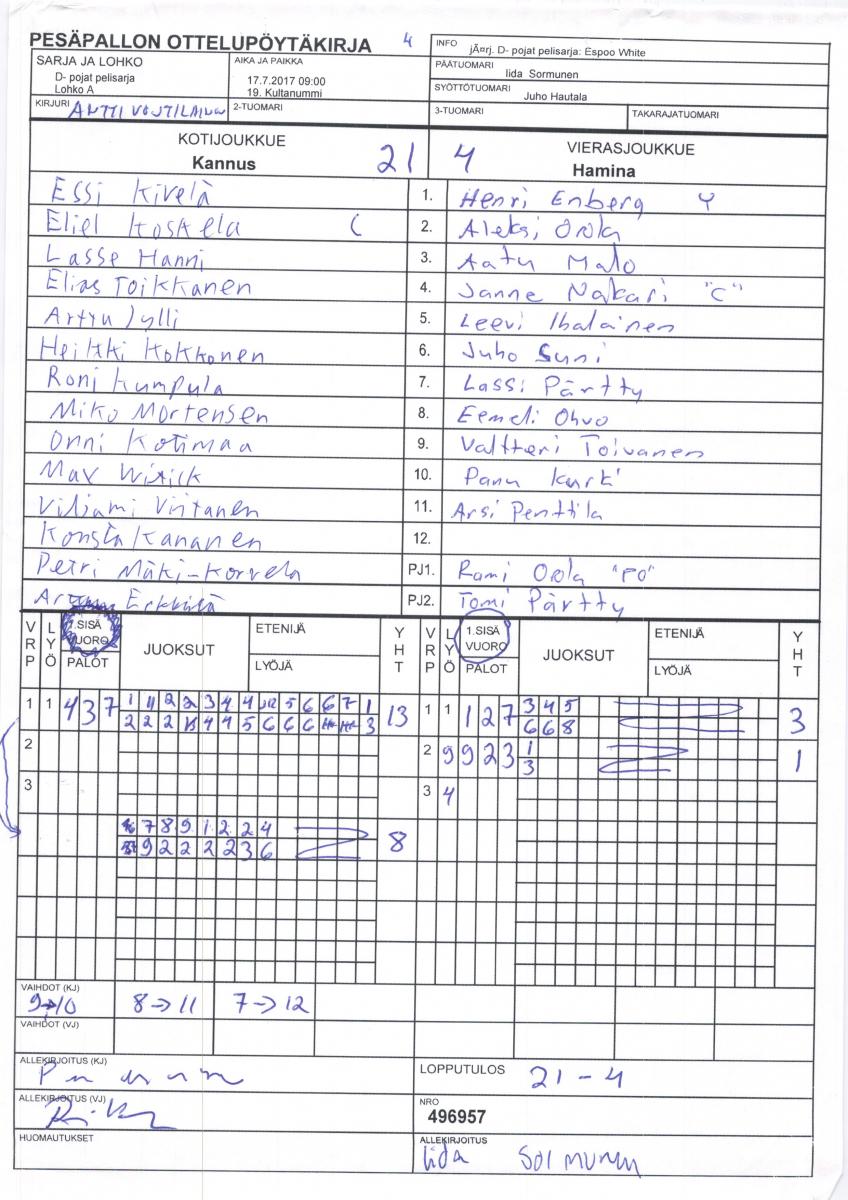 PESÄPALLON OTTELUPÖYTÄKIRJA 4
INFO järj. D- pojat pelisarja: Espoo White
SARJA JA LOHKO
D- pojat pelisarja
Lohko A
AIKA JA PAIKKA
17.7.2017 09:00
19. Kultanummi
PÄÄTUOMARI
Iida Sormunen
SYÖTTÖTUOMARI
Juho Hautala
KIRJURI ANTTI
2-TUOMARI
3-TUOMARI
TAKARAJATUOMARI
KOTIJOUKKUE
Kannus 21
VIERASJOUKKUE
4 Hamina
Essi Kivelä 1. Henri Enberg Y
Eliel Koskela C 2. Aleksi Orola
Lasse Hanni 3. Aatu Malo
Elias Toikkanen 4. Janne Nakari "C"
Arttu Jylli 5. Leevi Ihalainen
Heikki Kokkonen 6. Juho Suni
Roni Kumpula 7. Lassi Pärtty
Miko Mortensen 8. Eemeli Ohvo
Onni Kotimaa 9. Valtteri Toivanen
Max Wirick 10. Panu Kurki
Viljami Virtanen 11. Arsi Penttila
Konsta Kananen 12.
Petri Mäki-Korvela PJ1. Rami Orola "PO"
Erkkilä PJ2. Tomi Pärtty
VRP LYÖ 1.SISÄ VUORO PALOT JUOKSUT ETENIJÄ LYÖJÄ YHT
VRP LYÖ 1.SISÄ VUORO PALOT JUOKSUT ETENIJÄ LYÖJÄ YHT
1 1 4 3 7 13
1 1 1 2 7 3 4 5 3
6 6 8
2
2 9 9 2 3 1 1
3
3
3 4
7 8 9 1 2 2 4 8
9 2 2 2 2 3 6
VAIHDOT (KJ)
9→10 8→11 7→12
VAIHDOT (VJ)
ALLEKIRJOITUS (KJ)
LOPPUTULOS 21 - 4
ALLEKIRJOITUS (VJ)
NRO
496957
HUOMAUTUKSET
ALLEKIRJOITUS
Iida Sormunen